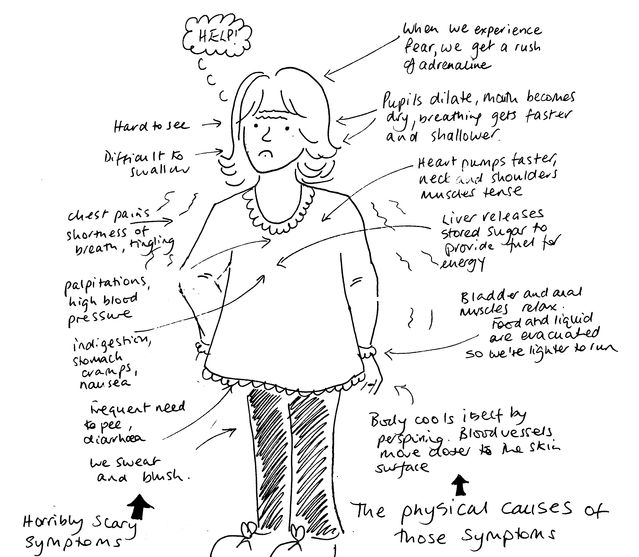 HELP!
When we experience
fear, we get a rush
of adrenaline
Pupils dilate, mouth becomes
dry, breathing gets faster
and shallower.
Heart pumps faster,
neck and shoulders
muscles tense
Liver releases
stored sugar to
provide fuel for
energy
Bladder and anal
muscles relax.
Food and liquid
are evacuated
so we're lighter to run
Body cools itself by
perspiring. Blood vessels
move closer to the skin
surface
The physical causes of
those symptoms
Hard to see
Difficult to
swallow
chest pains
shortness of
breath, tingling
palpitations,
high blood
pressure
indigestion,
stomach
cramps,
nausea
frequent need
to pee,
diarrhoea
we sweat
and blush.
Horribly scary
symptoms